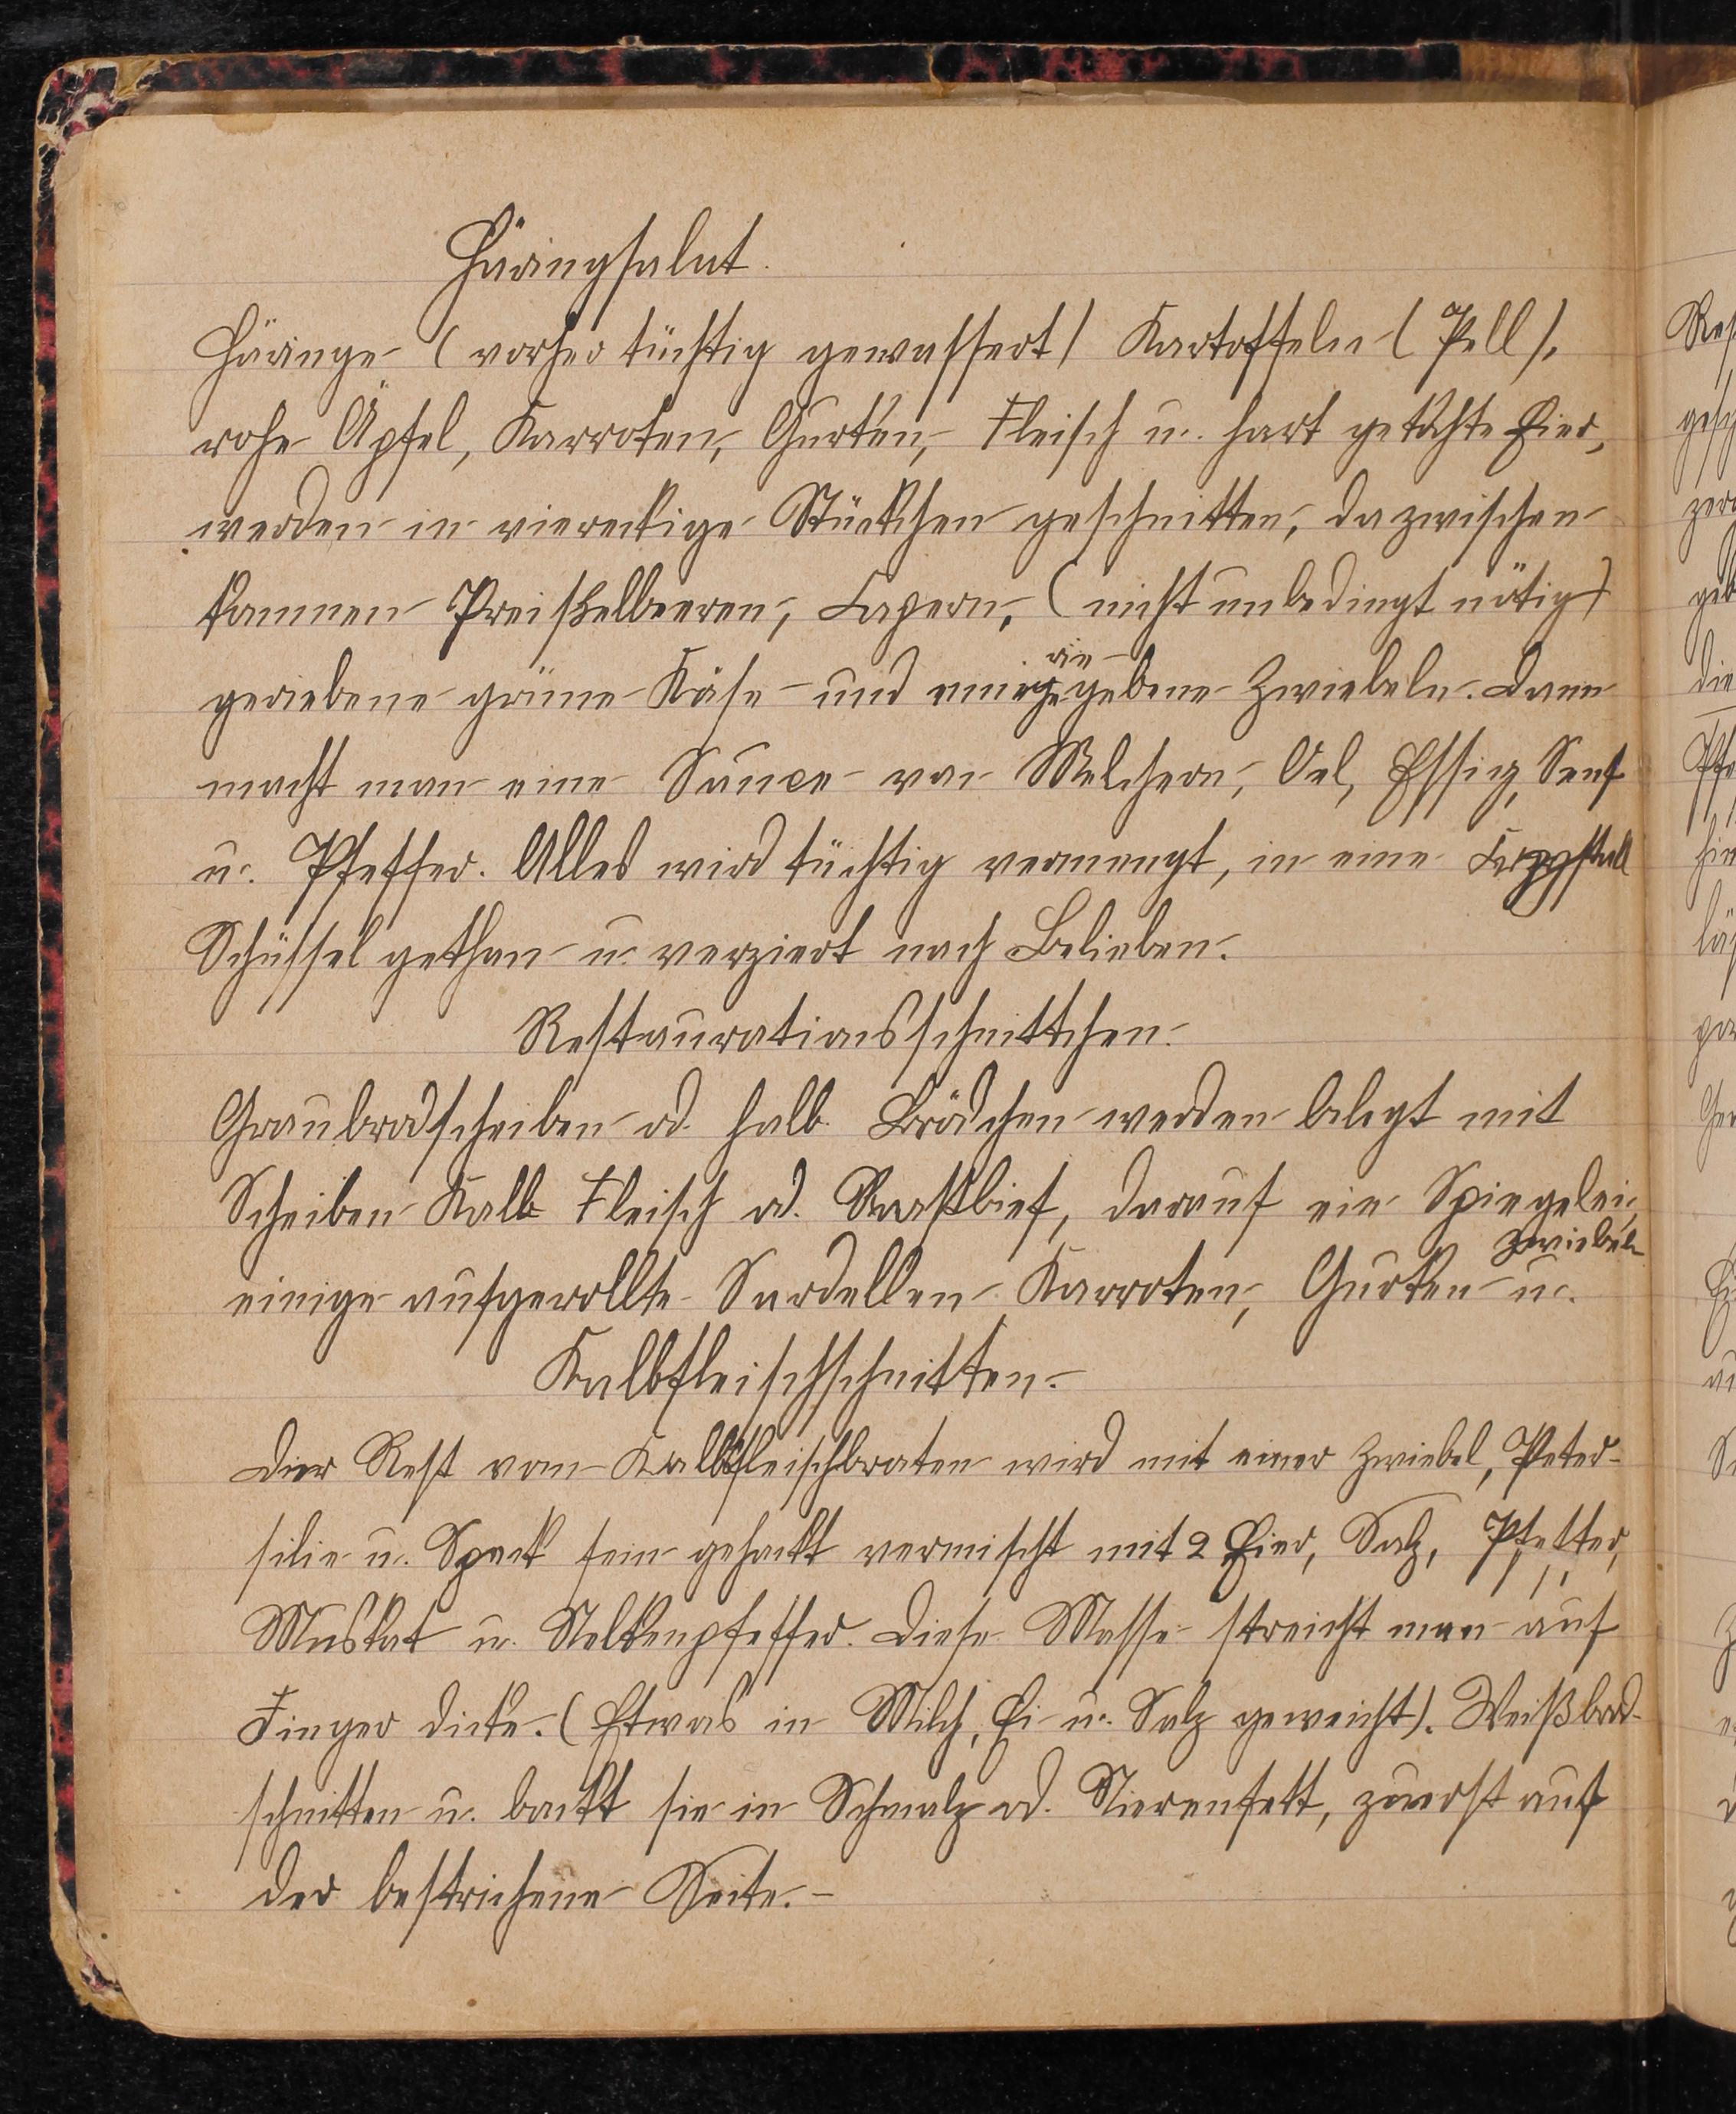 Häringsalat.
Häringe (vorher tüchtig gewässert) Kartoffeln (Pell),
rohe Äpfel, Karroten, Gurken, Fleisch u. hart gekochte Eier,
werden in viereckige Stückchen geschnitten, dazwischen
kommen Preiselbeeren, Capern, (nicht unbedingt nötig)
geriebene grüne Käse und einige geriebene Zwiebeln. Dann
macht man eine Sauce von Milchern, Oel, Essig, Senf
u. Pfeffer. Alles wird tüchtig vermengt, in eine
Schüssel gethan u. verziert nach Belieben.
Restaurationsschnittchen.
Graubrodscheiben od. halb. Brödchen werden belegt mit
Scheiben Kalb Fleisch od. Roastbief, darauf ein Spiegelei,
einige aufgerollte Sardellen Karroten, Gurken u. Zwiebeln
Kalbfleischschnitten.
Der Rest vom Kalbfleischbraten wird mit einer Zwiebel, Peter-
silie u. Speck fein gehackt vermischt mit 2 Eier, Salz, Pfeffer,
Muskat u. Nelkenpfeffer. Diese Masse streicht man auf
Finger dicke. (Etwas in Milch, Ei u. Salz geweicht). Weißbrod-
schnitten u. backt sie in Schmalz od. Nierenfett, zuerst auf
der bestrichene Seite.-